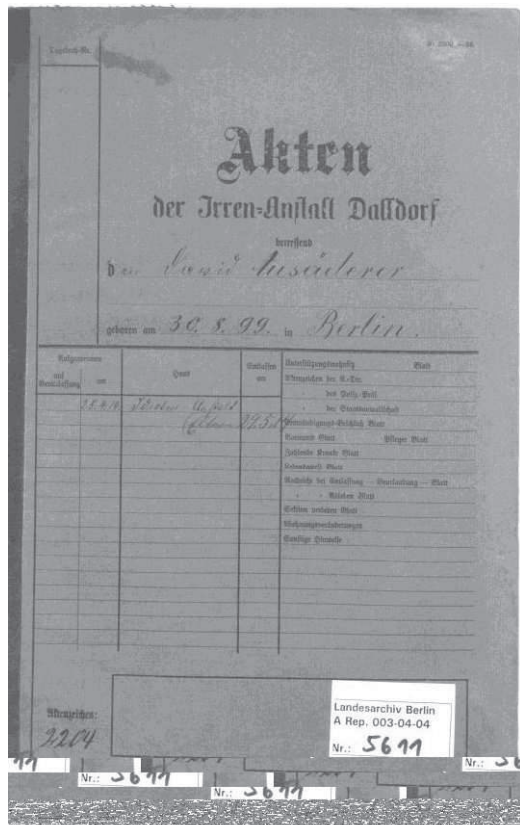 Tagebuch-Nr.
Akten
der Irren-Anstalt Dalldorf
betreffend
David
geboren am 30.8.99. in Berlin.
Aufgenommen
auf Veranlassung
am
Haus
Entlassen am
Unterstützungswohnsitz Blatt
Aktenzeichen der
des Poliz.-Präs.
der Staatsanwaltschaft
Entmündigungs-Beschluß Blatt
Vormund Blatt Pfleger Blatt
Zahlende Kranke Blatt
Lebenslauf Blatt
Nachricht bei Entlassung - Beurlaubung - Blatt
Ableben Blatt
Sektion Blatt
Wohnungsveränderungen
Sonstige Hinweise
Aktenzeichen:
2204
Landesarchiv Berlin
A Rep. 003-04-04
Nr.: 5611
Nr.: 5611
Nr.: 5611
Nr.: